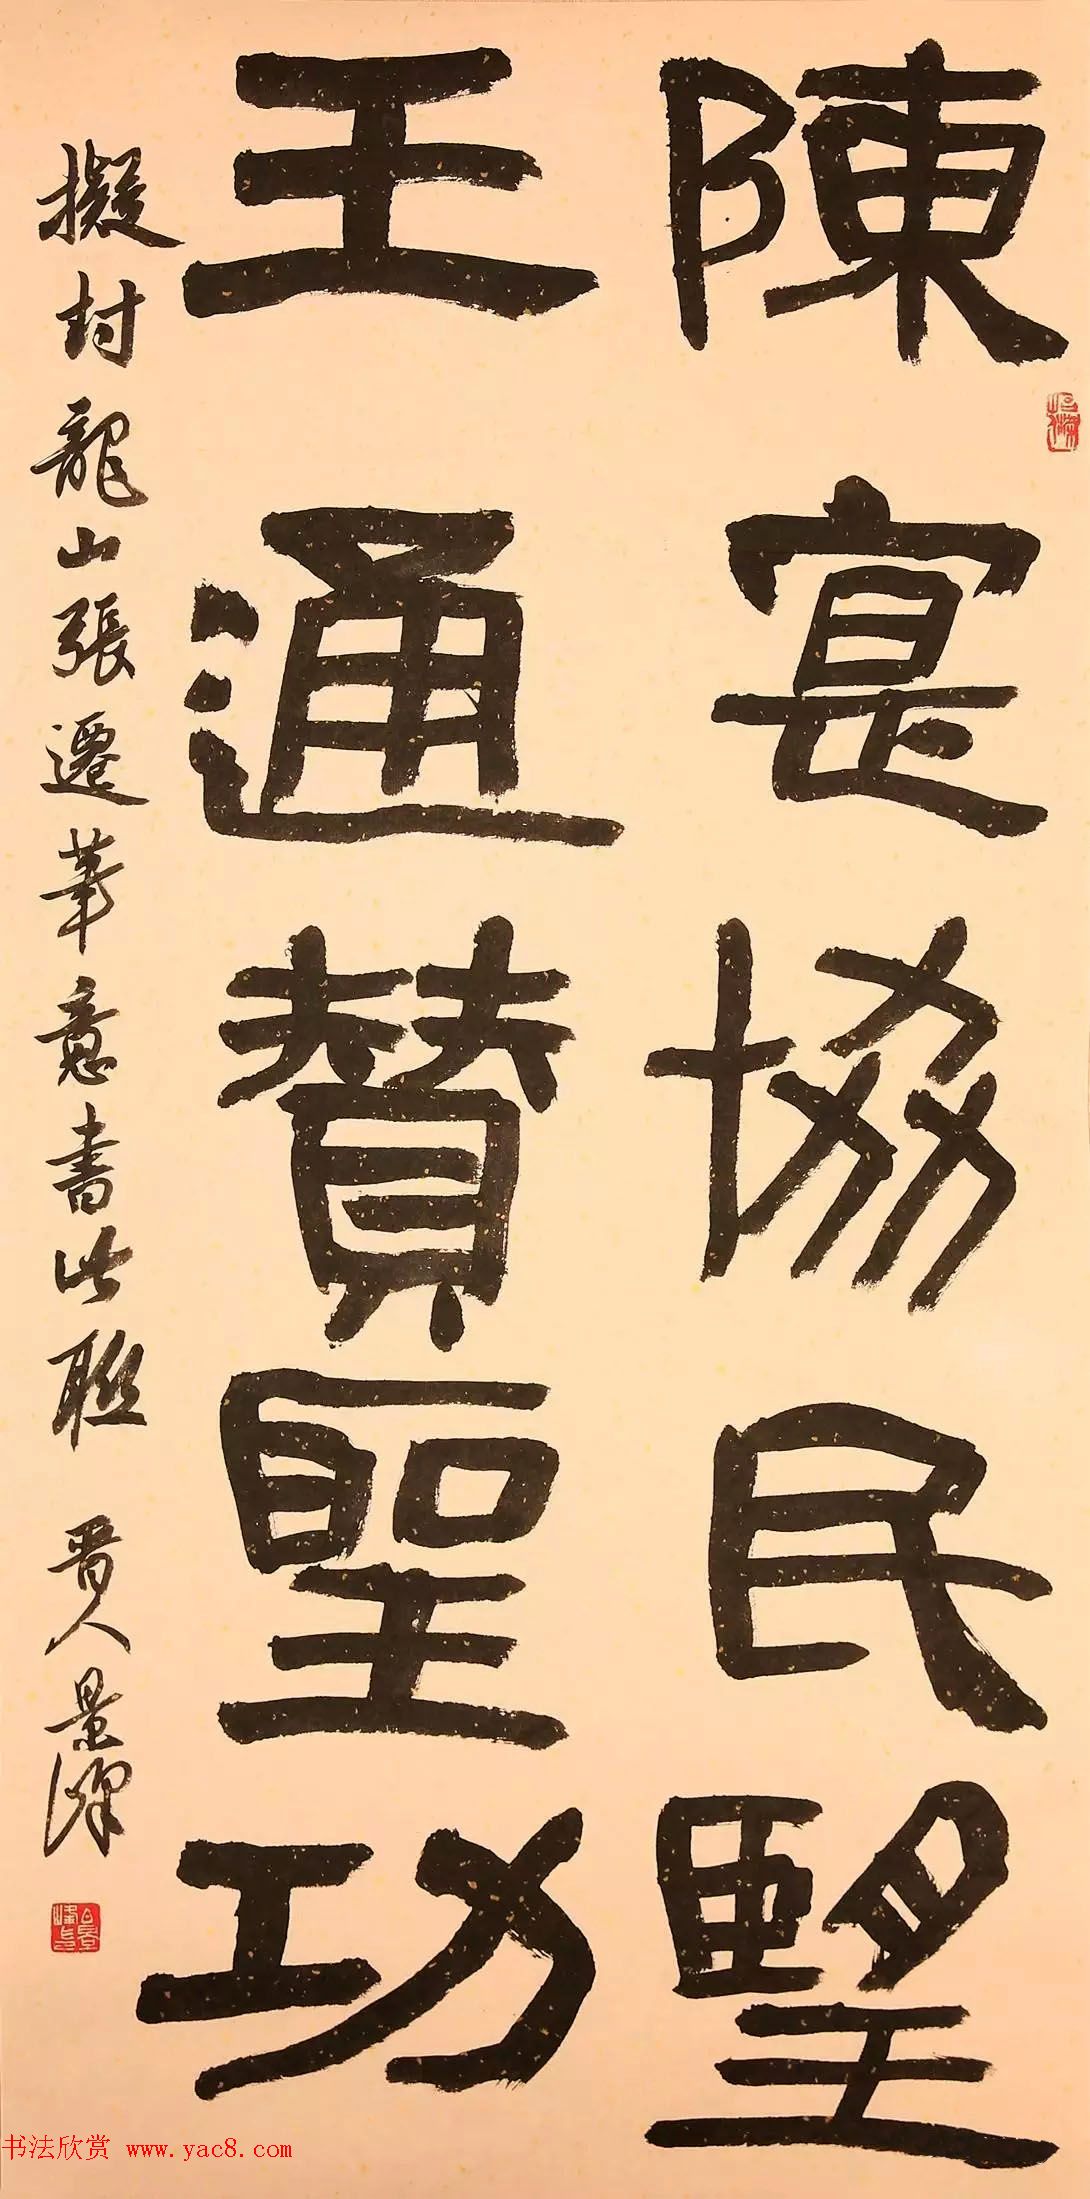 陳寔協民望
王通贊聖功
擬封龍山張遷筆意書此聯 晋人景峰
書法欣赏 www.yac8.com